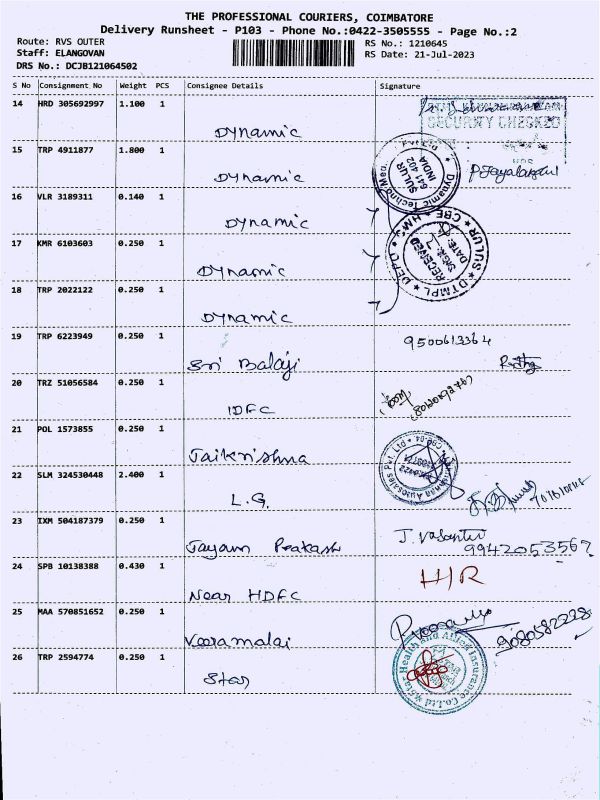 THE PROFESSIONAL COURIERS, COIMBATORE
Delivery Runsheet - P103 - Phone No.:0422-3505555 - Page No.:2
Route: RVS OUTER RS No.: 1210645
Staff: ELANGOVAN RS Date: 21-Jul-2023
DRS No.: DCJB121064502
S No Consignment No Weight PCS Consignee Details Signature
14 HRD 305692997 1.100 1
SECURITY CHECKED
Dynamic
15 TRP 4911877 1.800 1
Dynamic
Dynamic Techno Med. Pvt Ltd
SULUR
641 402
INDIA
P.Jayalaxmi
16 VLR 3189311 0.140 1
Dynamic
17 KMR 6103603 0.250 1
Dynamic
DTMPL ★ DEPO ★ HM ★ CBE ★ SULUR
RECEIVED
DATE:
18 TRP 2022122 0.250 1
Dynamic
19 TRP 6223949 0.250 1 9500613364
Sri Balaji
20 TRZ 51056584 0.250 1
IDFC
21 POL 1573855 0.250 1
Jaikrishna
22 SLM 324530448 2.400 1
L.G.
23 IXM 504187379 0.250 1 J. Vasanthi
Jayam Prakash 9942053567
24 SPB 10138388 0.430 1 H/R
Near HDFC
25 MAA 570851652 0.250 1
Veeramalai 9080582228
26 TRP 2594774 0.250 1
Star
Star Health and Allied Insurance Co.Ltd